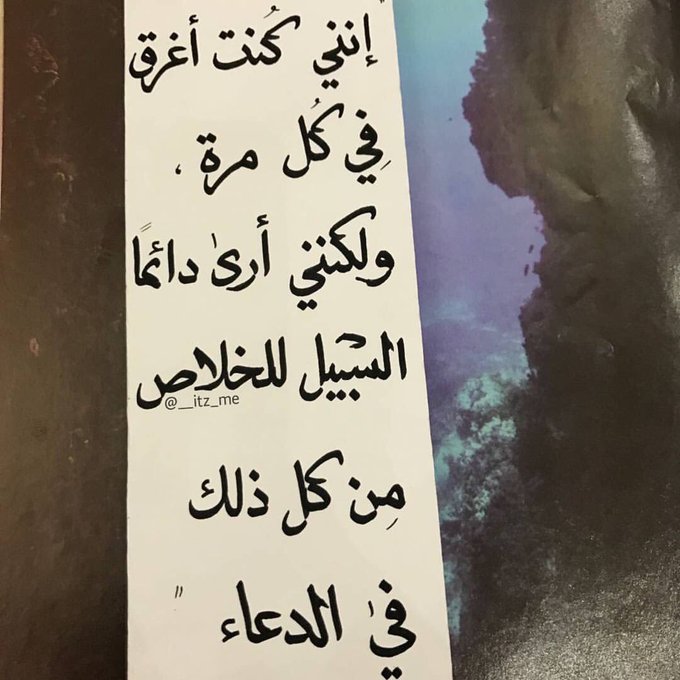 "إنني كُنت أغرق
فِي كُل مرة ،
ولكنني أرىٰ دائمًا
السبيل للخلاص
@__itz_me
مِن كل ذلك
في الدعاء"